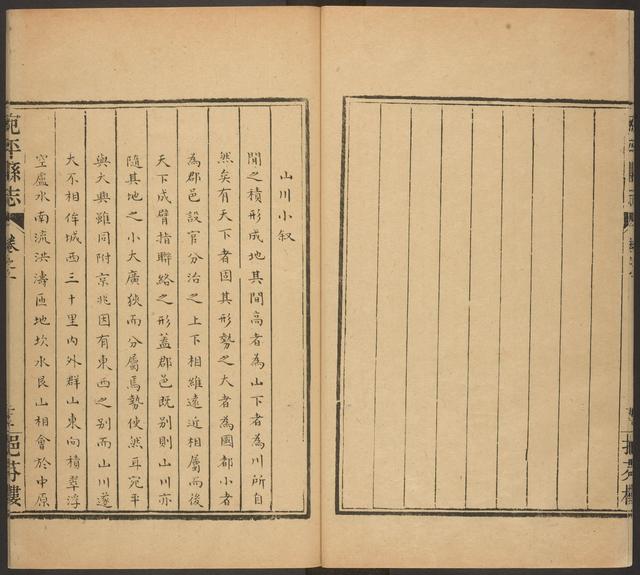 山川小叙
聞之積形成地其間高者為山下者為川所自
然矣有天下者固其形勢之大者為國都小者
為郡邑設官分治之上下相維遠近相屬而後
天下成臂指聯絡之形蓋郡邑既別則山川亦
隨其地之小大廣狹而分屬焉勢使然耳宛平
與大興雖同附京兆因有東西之別而山川遂
大不相侔城西三十里內外群山東向積翠浮
空盧水南流洪濤匝地坎水艮山相會於中原
宛平縣志
卷之一
邑芬樓